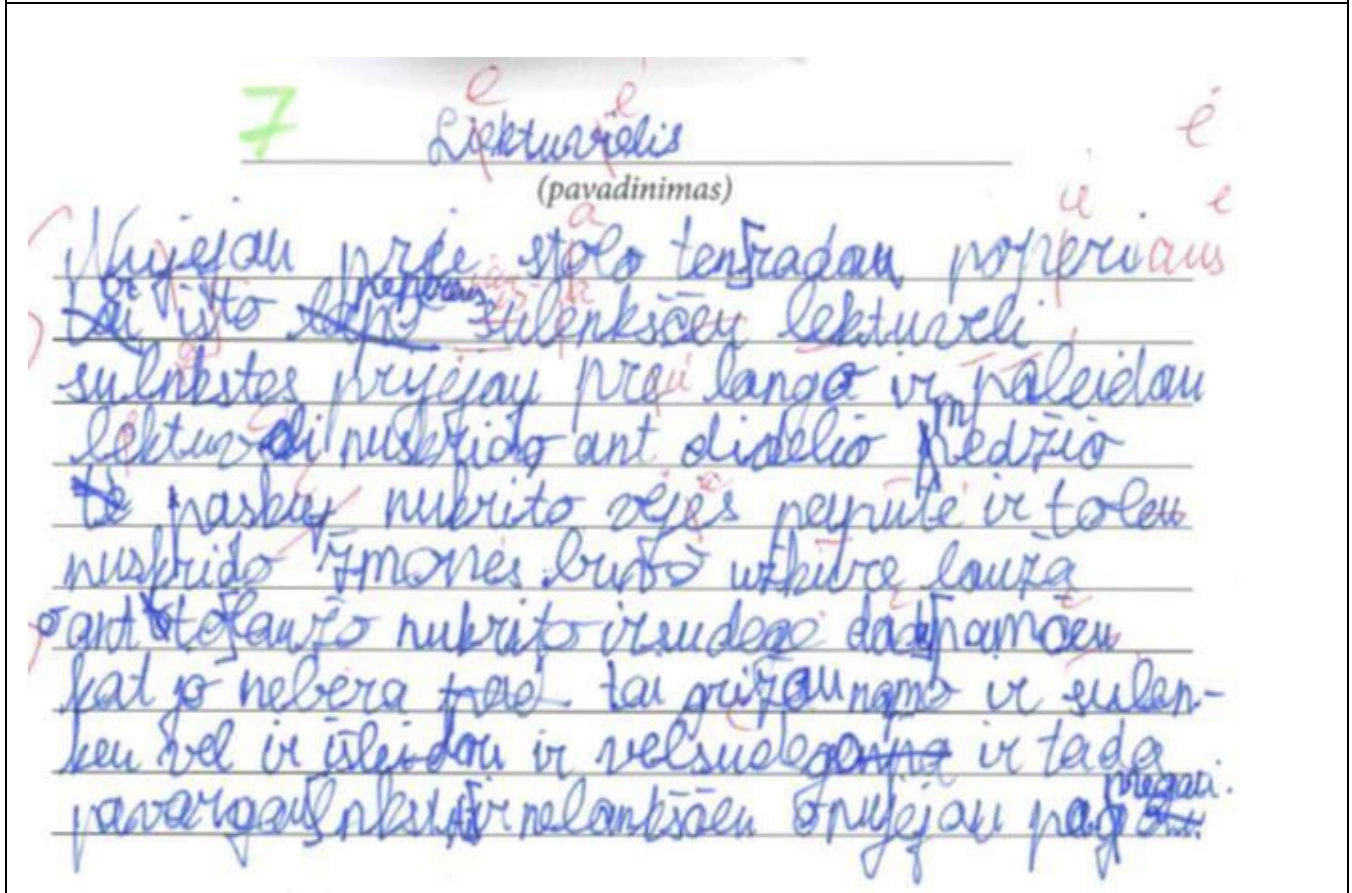 7
Liektuvielis
(pavadinimas)
Nujejau prie stolo ten radau poperiaus
ir iš to sulenkščeu lektuveli
sulnkstes pryjejau prei lango ir paleidau
lektuveli nuskrido ant didelio medžio
paskuj nukrito vėjes ir toleu
nuskrido žmonės buvo užkurę laužą
o ant to laužo nukrito ir sudege pamačeu
kat jo nebėra tai grižau namo ir sulen-
keu vel ir išleidau ir vel sudega ir tada
pavargau ir nelankščeu o nujėjau